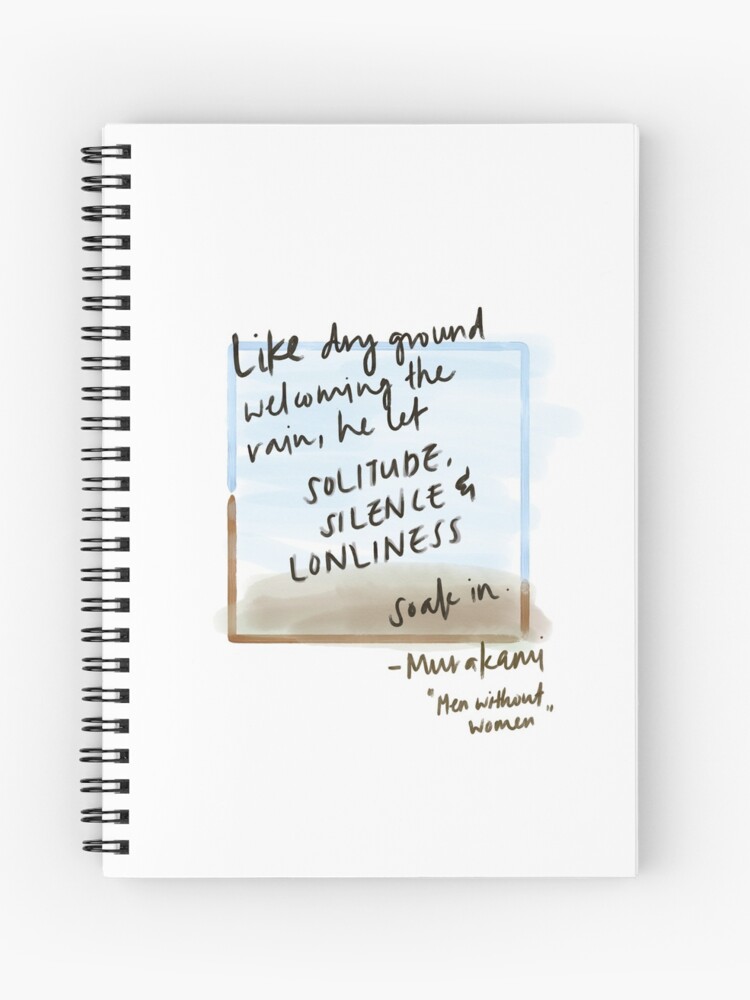 Like dry ground
welcoming the
rain, he let
SOLITUDE,
SILENCE &
LONLINESS
soak in.
-Murakami
"Men without
women"